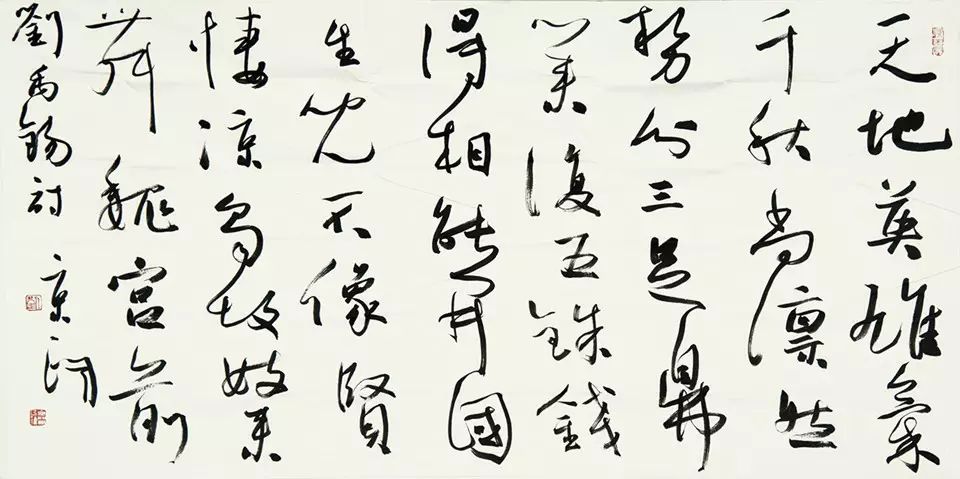 天地英雄氣
千秋尚凛然
勢分三足鼎
業復五銖錢
得相能開國
生兒不像賢
悽涼蜀故妓來
舞魏宮前
劉禹錫詩 京